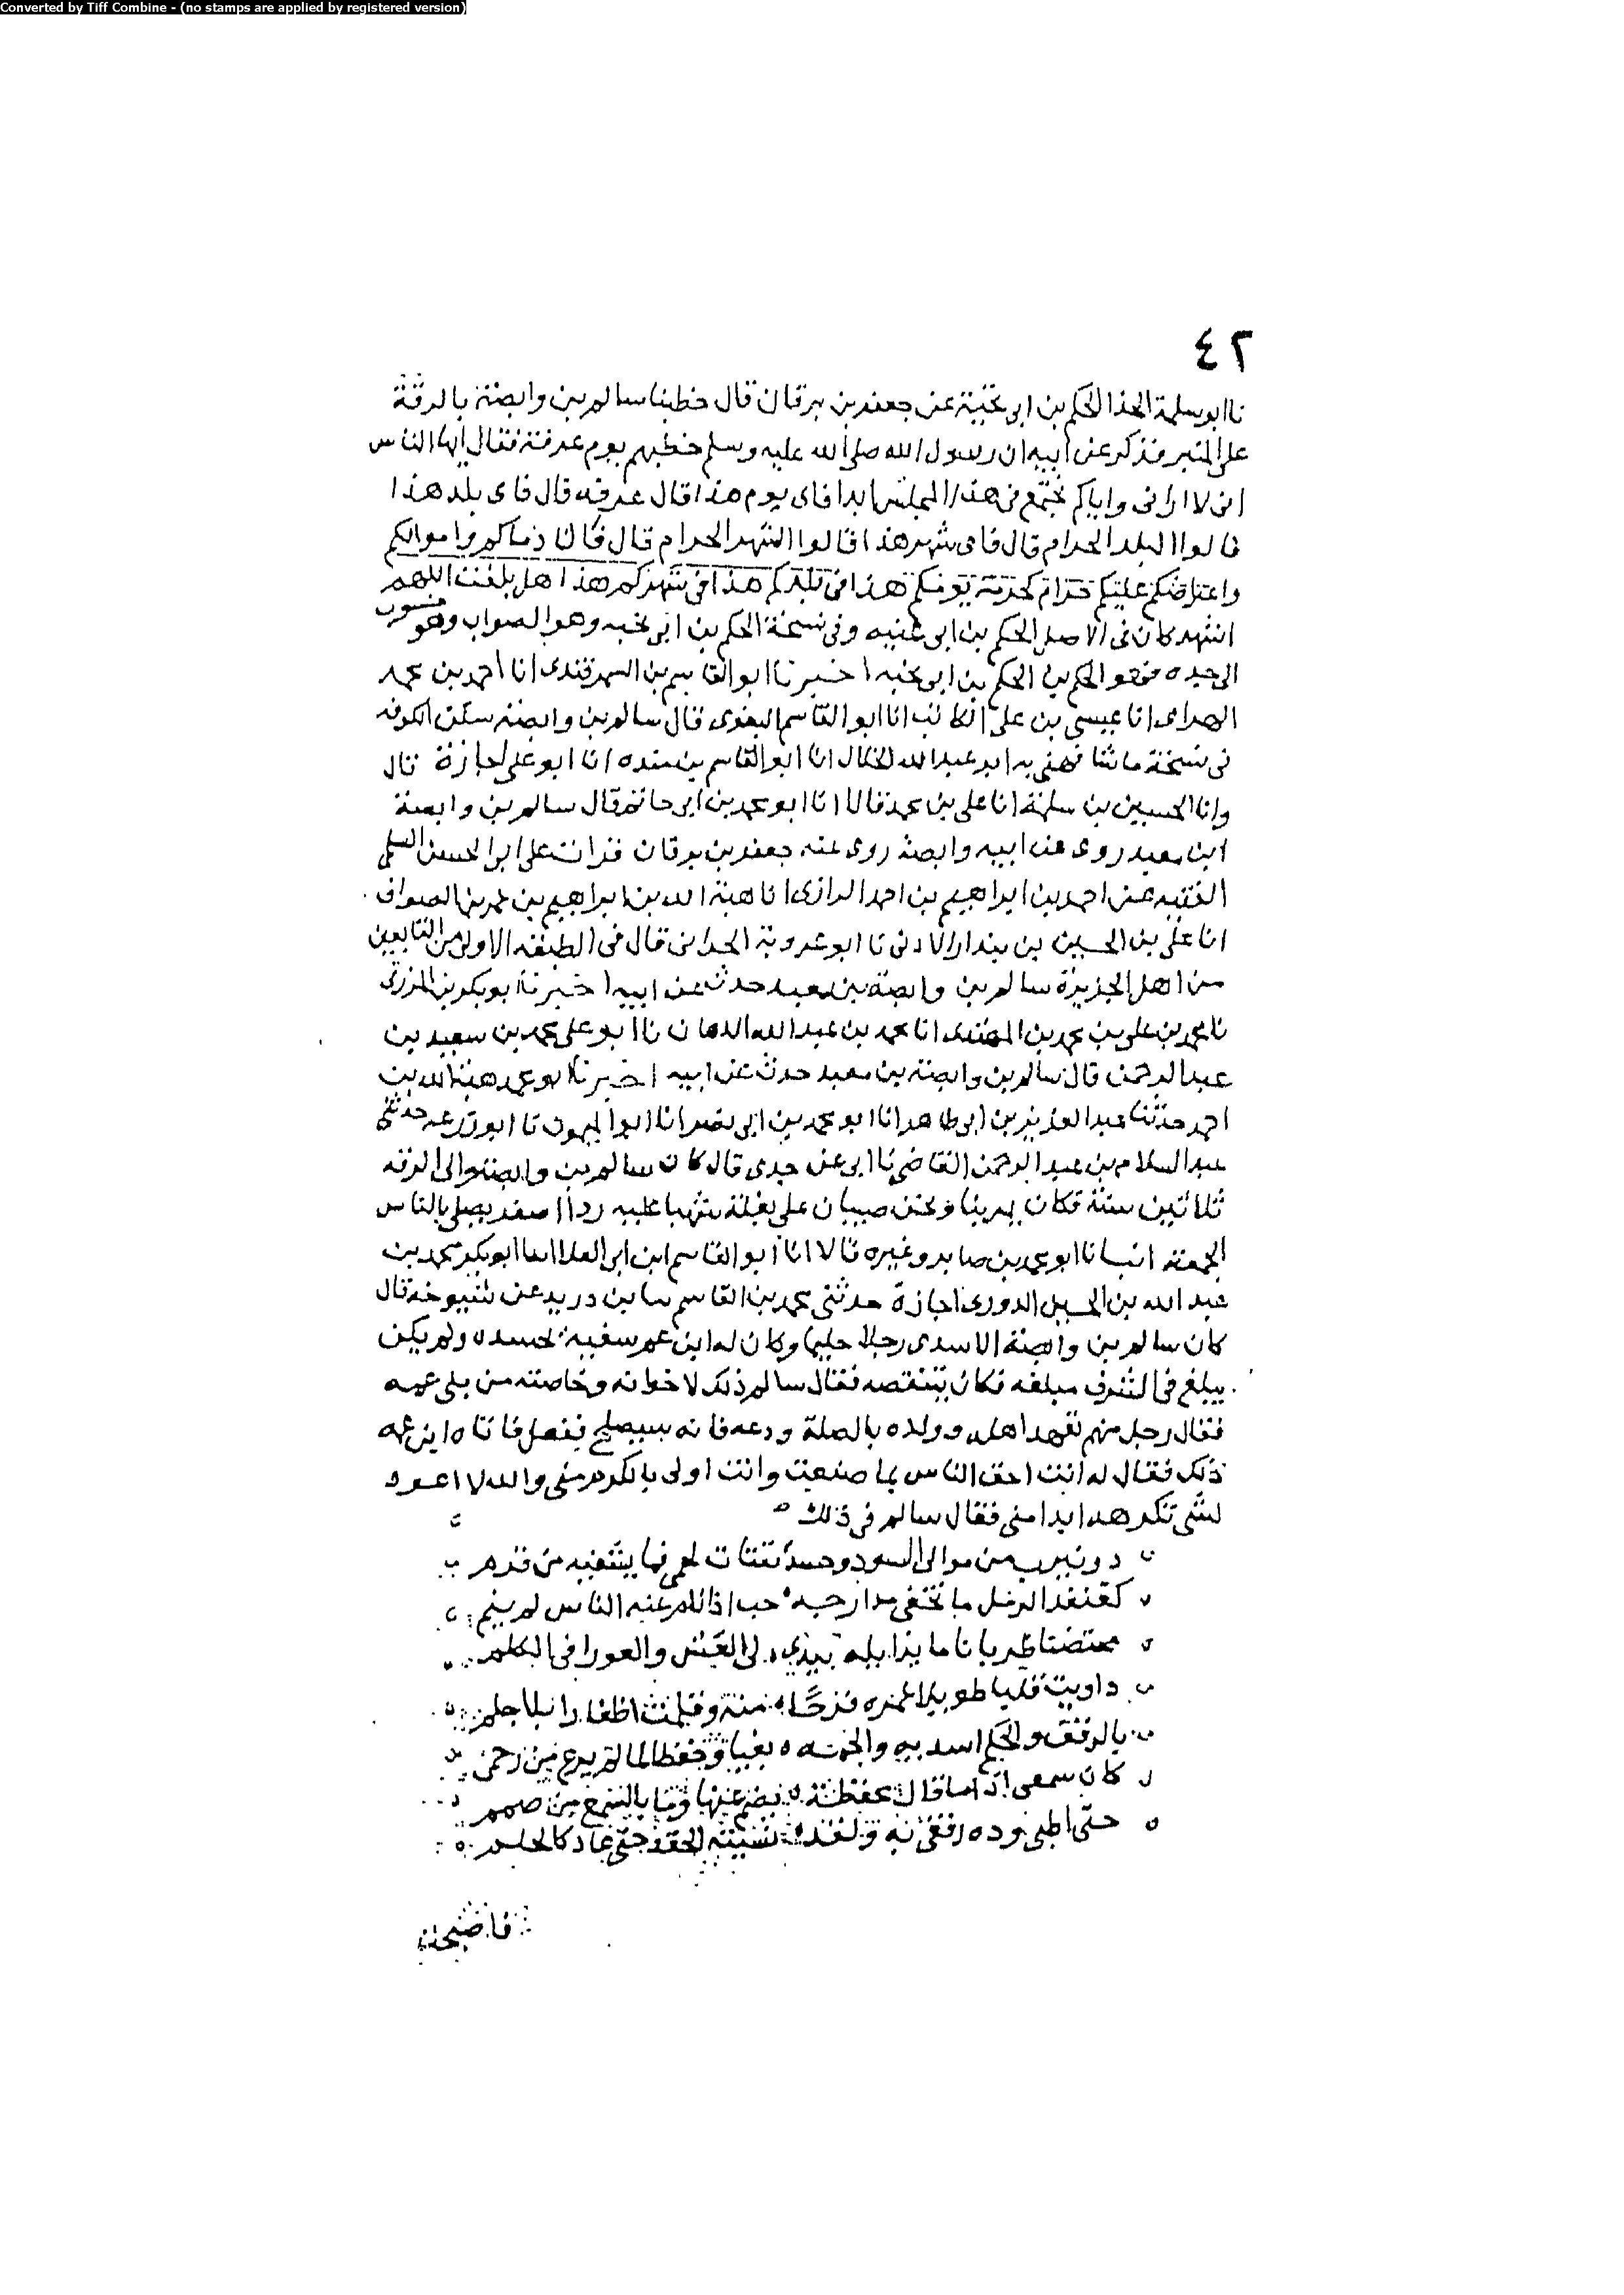 Converted by Tiff Combine - (no stamps are applied by registered version)
٤٢
نا ابو سلمة الحذا الحكم بن ابى نجيبة عن جعفر بن برقان قال خطبنا سالم بن وابصة بالرقة
على المنبر فذكر عن ابيه ان رسول الله صلى الله عليه وسلم خطبهم يوم عرفة فقال ايها الناس
انى لا ارانى واياكم نجتمع فى هذا المجلس ابدا فاى يوم هذا قال عرفه قال فاى بلد هذا
قالوا البلد الحرام قال فاى شهر هذا قالوا الشهر الحرام قال فان دماكم واموالكم
واعراضكم عليكم حرام كحرمة يومكم هذا فى بلدكم هذا فى شهركم هذا هل بلغت اللهم
اشهد كان فى الاصل الحكم بن ابى وفى نسخة الحكم بن ابى نجبه وهو الصواب وهو منسوب
الى جده فهو الحكم بن الحكم بن ابى نجبه اخبرنا ابو القاسم بن السمرقندى انا احمد بن محمد
انا عيسى بن على الكاتب انا ابو القاسم البغوى قال سالم بن وابصة سكن الكوفه
فى نسخة ما شافهنى به ابو عبد الله الخلال انا ابو القاسم بن منده انا ابو على اجازة قال
وانا الحسين بن سلمة انا على بن محمد قالا انا ابو محمد بن ابى حاتم قال سالم بن وابصة
ابن معبد روى عن ابيه وابصة روى عنه جعفر بن برقان قرات على ابى الحسن السلمى
الفقيه عن احمد بن ابراهيم بن احمد الرازى انا هبة الله بن ابراهيم بن عمر بن الصواف
انا على بن الحسين بن بندار الادنى نا ابو عروبة الحرانى قال فى الطبقه الاولى من التابعين
من اهل الجزيرة سالم بن وابصة بن معبد حدث عن ابيه اخبرنا ابو بكر بن المزرفى
نا محمد بن على بن محمد بن المهتدى انا محمد بن عبد الله الدهان نا ابو على محمد بن سعيد بن
عبد الرحمن قال سالم بن وابصة بن معبد حدث عن ابيه اخبرنا ابو محمد هبة الله بن
احمد حدثنا عبد العزيز بن ابى طاهر انا ابو محمد بن ابى نصر انا ابو الميمون نا ابو زرعه حدثنى
عبد السلام بن عبد الرحمن القاضى نا ابى عن جدى قال كان سالم بن وابصة والى الرقه
ثلاثين سنة فكان يمر بنا ونحن صبيان على بغلة شهبا عليه ردا اصفر يصلى بالناس
الجمعة انبانا ابو محمد بن صابر وغيره قالا انا ابو القاسم ابن ابى العلا انا ابو بكر محمد بن
عبد الله بن الدورى اجازة حدثنى محمد بن القاسم نا بن دريد عن شيوخه قال
كان سالم بن وابصة الاسدى رجلا حليما وكان له ابن عم سفيه يحسده ولم يكن
يبلغ فى الشرف مبلغه فكان يتنقصه فقال سالم ذلك لاخوانه وخاصته من بنى عمه
فقال رجل منهم تعهد اهله وولده بالصلة ودعه فانه سيصلح ففعل فاتاه ابن عمه
ذلك فقال له انت احق الناس بما صنعت وانت اولى بالكرم منى والله لا اعود
لشى تكرهه ابدا منى فقال سالم فى ذلك
ونيرب من موالى السود حسد يقتات لحمى فما يشفيه من قرم
كقنفذ الرمل ما تخفى مدارجه خب اذا نام عنه الناس لم ينم
محتضنا ظربانا ما يزايله يبدى لى الغش والعورا فى الكلم
داويت قلبا طويلا غمره قرحا منه وقلمت اظفارا بلا جلم
بالرفق والحلم اسديه والحمه بغيا وحفظا لما لم يرع من رحمى
كان سمعى اذا ما قال محفظة يصم عنها وما بالسمع من صمم
حتى اطبى وده رفقى به ولقد نسيته الحقد حتى عاد كالحلم
فاصبحت